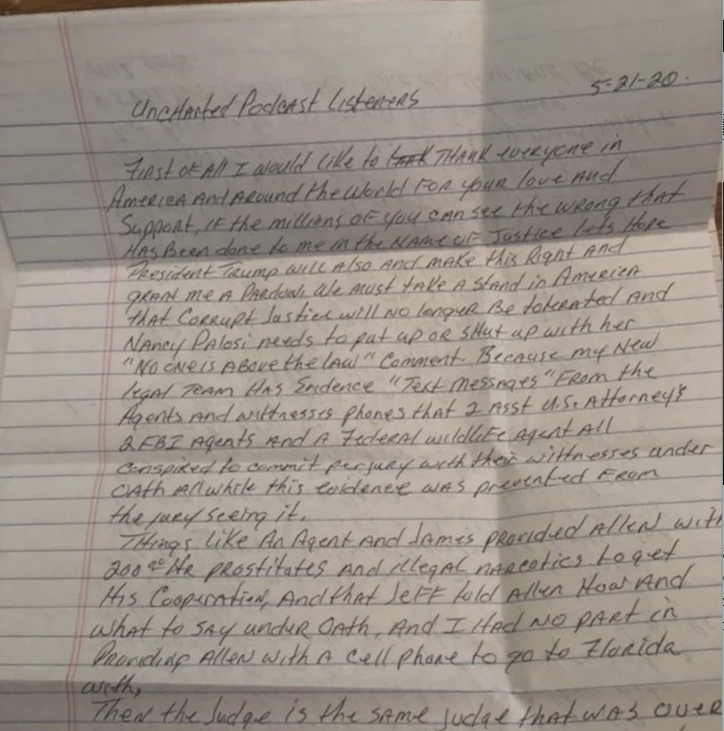 5-21-20.
Uncharted Podcast Listeners
First of All I would like to THANK everyone in
America And Around the World For your love And
Support, IF the millions OF you can see the wrong that
Has Been done to me in the NAME OF Justice lets Hope
President Trump will Also And make this Right And
grant me A Pardon. We must take A stand in America
that Corrupt Justice will No longer Be tolerated And
Nancy Palosi needs to put up or shut up with her
"No one is Above the law" Comment. Because my New
legal Team Has Evidence "Text Messages" From the
Agents And wittnesses phones that 2 Asst U.S. Attorney's
2 FBI Agents And A Federal wildlife Agent All
conspired to commit perjury with their wittnesses under
OAth All while this evidence was prevented From
the jury seeing it.
Things like An Agent And James provided Allen with
200 Hr prostitutes And illegal narcotics to get
His Cooperation, And that Jeff told Allen How And
what to say under Oath, And I Had No part in
Providing Allen with A cell phone to go to Florida
with,
Then the Judge is the same judge that was over